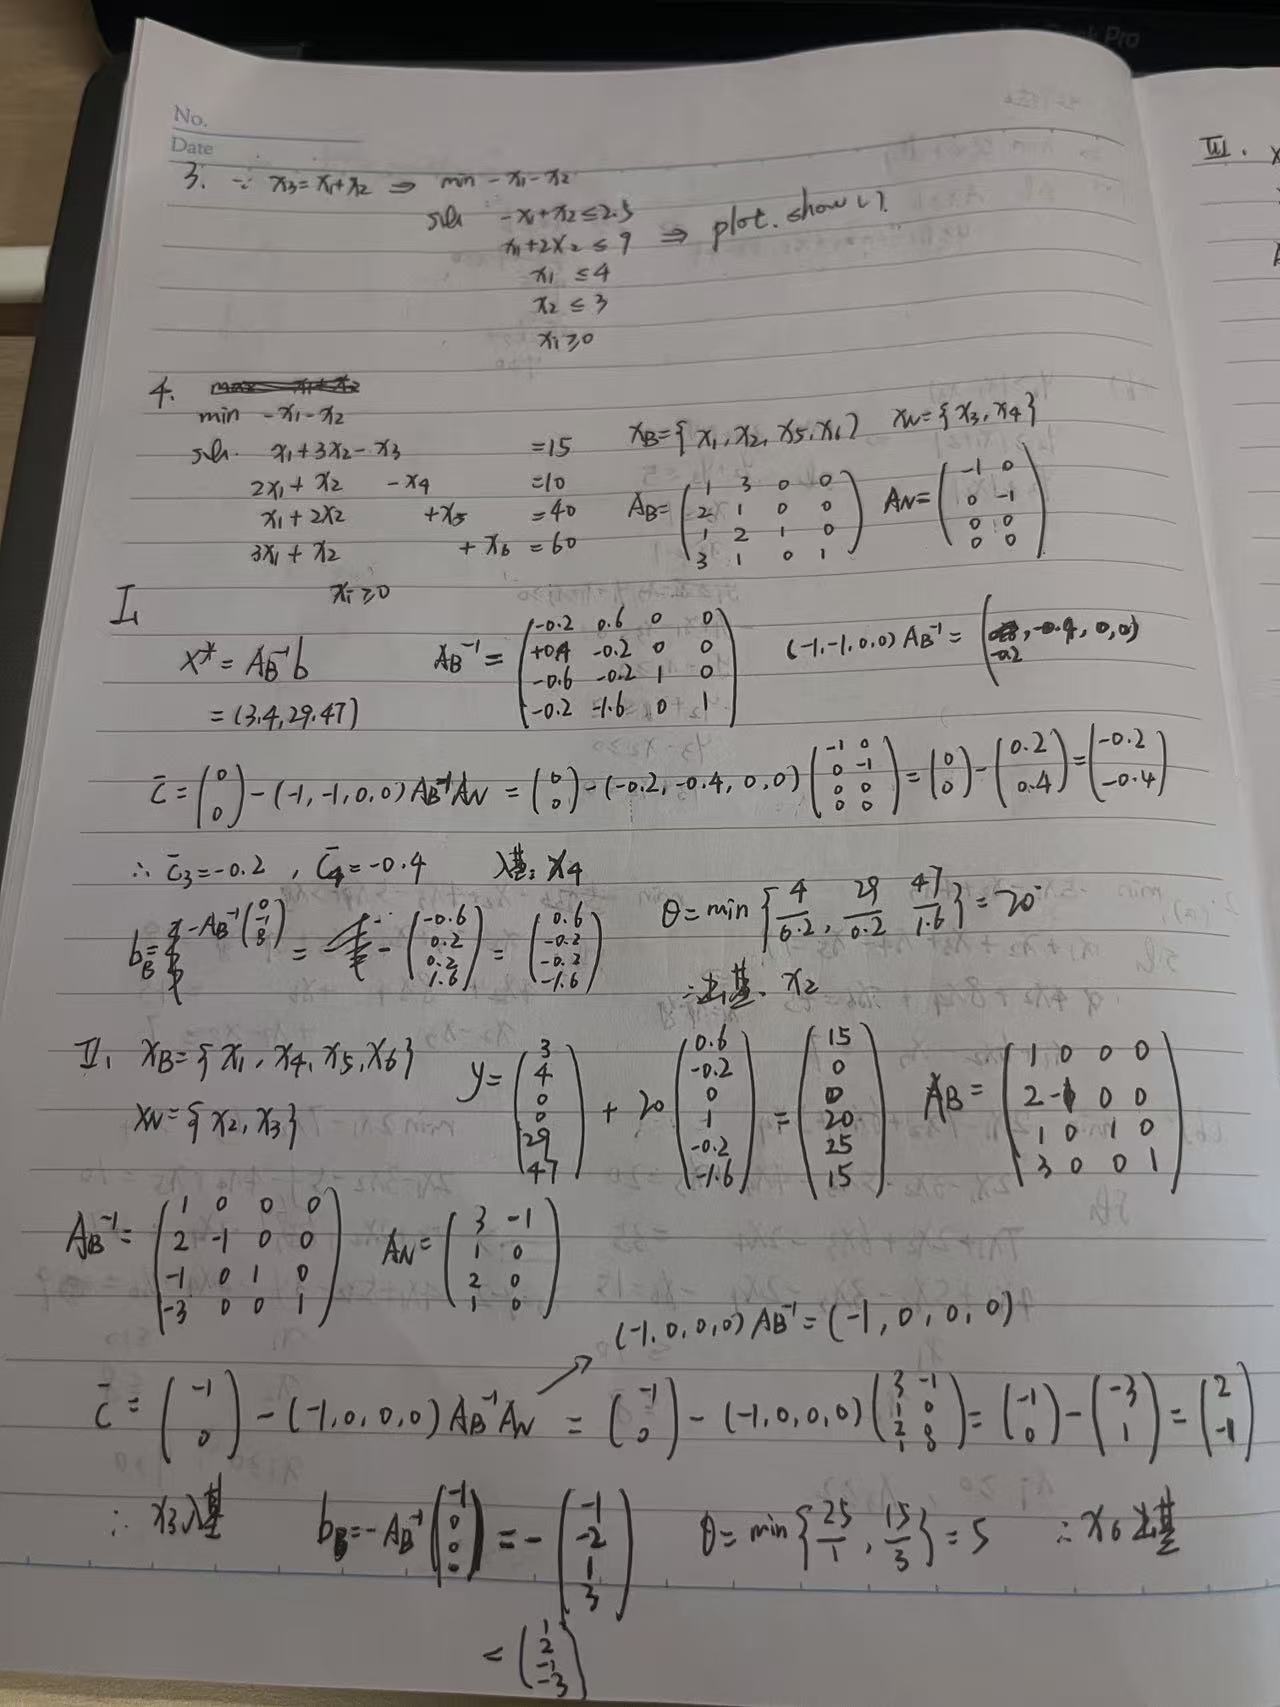 No.
Date
3. ∵ x₃=x₁+x₂ ⇒ min -x₁-x₂
-x₁+x₂≤2.5
x₁+2x₂≤9 ⇒ plot.show()
x₁≤4
x₂≤3
xᵢ≥0
4.
min -x₁-x₂
x₁+3x₂-x₃ =15
2x₁+x₂ -x₄ =10
x₁+2x₂ +x₅ =40
3x₁+x₂ +x₆=60
xᵢ≥0
x_B={x₁,x₂,x₅,x₆} x_N={x₃,x₄}
A_B=(1 3 0 0; 2 1 0 0; 1 2 1 0; 3 1 0 1) A_N=(-1 0; 0 -1; 0 0; 0 0)
I.
x*=A_B⁻¹b
=(3,4,29,47)
A_B⁻¹=(-0.2 0.6 0 0; +0.4 -0.2 0 0; -0.6 -0.2 1 0; -0.2 -1.6 0 1)
(-1,-1,0,0)A_B⁻¹=(-0.2, -0.4, 0, 0)
c̄=(0; 0)-(-1,-1,0,0)A_B⁻¹A_N=(0; 0)-(-0.2,-0.4,0,0)(-1 0; 0 -1; 0 0; 0 0)=(0; 0)-(0.2; 0.4)=(-0.2; -0.4)
∴ c̄₃=-0.2, c̄₄=-0.4 入基: x₄
b_B=-A_B⁻¹(0; -1; 0; 0)=-(-0.6; 0.2; 0.2; 1.6)=(0.6; -0.2; -0.2; -1.6)
θ=min{4/0.2, 29/0.2, 47/1.6}=20
∴出基. x₂
II. x_B={x₁,x₄,x₅,x₆}
x_N={x₂,x₃}
y=(3; 4; 0; 0; 29; 47)+20(0.6; -0.2; 0; 1; -0.2; -1.6)=(15; 0; 0; 20; 25; 15)
A_B=(1 0 0 0; 2 -1 0 0; 1 0 1 0; 3 0 0 1)
A_B⁻¹=(1 0 0 0; 2 -1 0 0; -1 0 1 0; -3 0 0 1) A_N=(3 -1; 1 0; 2 0; 1 0)
(-1,0,0,0)A_B⁻¹=(-1,0,0,0)
c̄=(-1; 0)-(-1,0,0,0)A_B⁻¹A_N=(-1; 0)-(-1,0,0,0)(3 -1; 1 0; 2 0; 1 0)=(-1; 0)-(-3; 1)=(2; -1)
∴ x₃入基
b_B=-A_B⁻¹(-1; 0; 0; 0)=-(-1; -2; 1; 3)
=(1; 2; -1; -3)
θ=min{25/1, 15/3}=5 ∴x₆出基
III. x